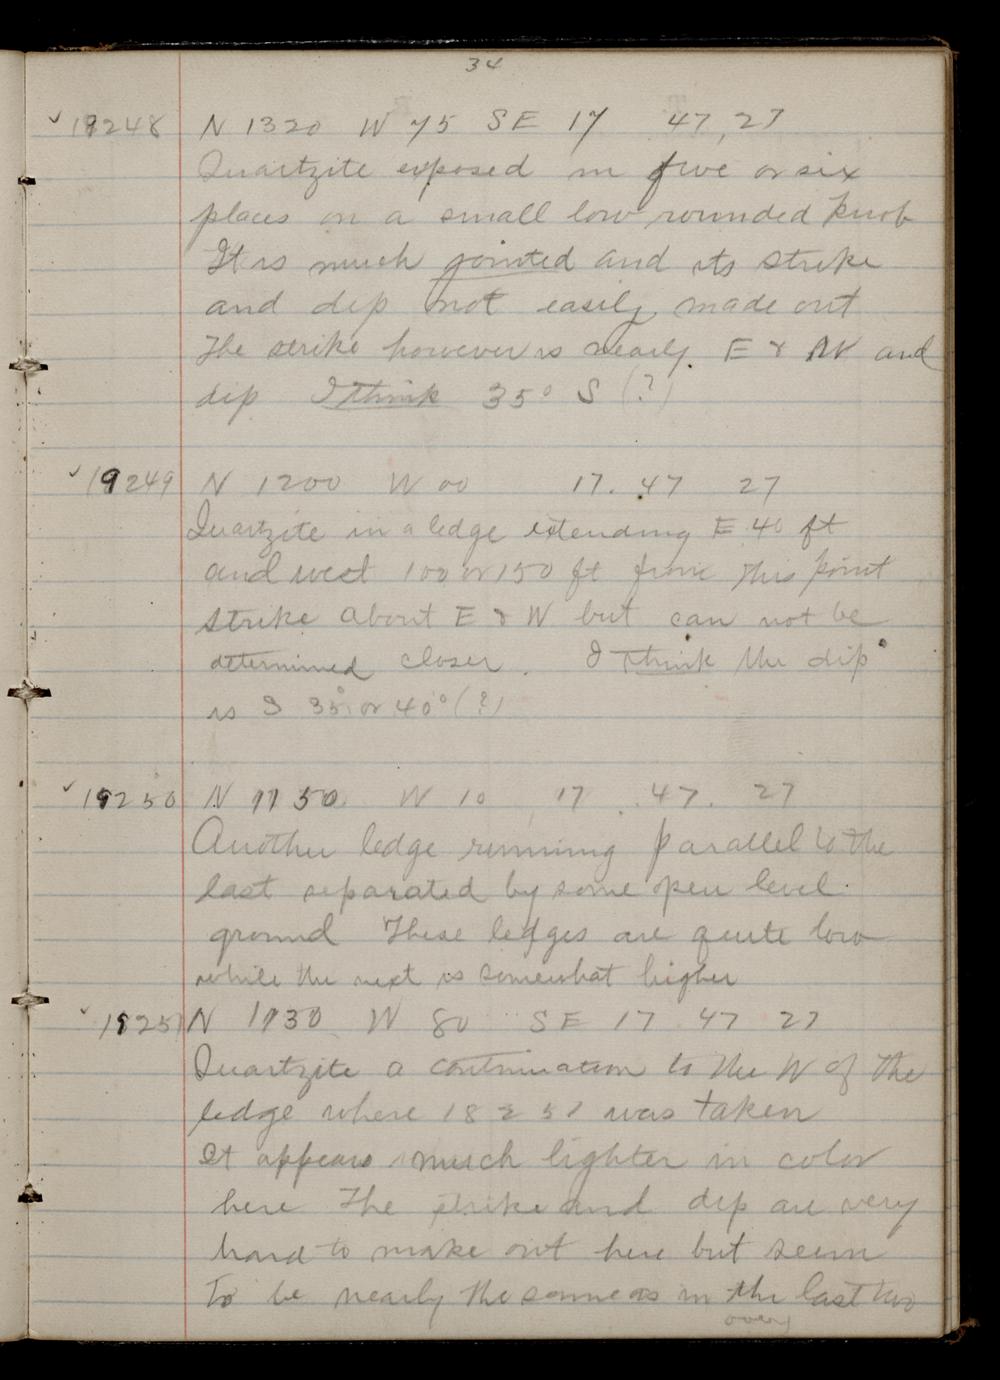 34
✓ 19248 N 1320 W 75 SE 17 47, 27
Quartzite exposed in five or six
places on a small low rounded knob
It is much jointed and its strike
and dip not easily made out
The strike however is nearly E & W and
dip I think 35° S (?)
✓ 19249 N 1200 W 00 17. 47 27
Quartzite in a ledge extending E 40 ft
and west 100 or 150 ft from this point
strike about E & W but can not be
determined closer. I think the dip
is S 35° or 40° (?)
✓ 19250 N 1150 W 10 17 47. 27
Another ledge running parallel to the
last separated by some open level
ground These ledges are quite low
while the next is somewhat higher
✓ 19251 N 1130 W 80 SE 17 47 27
Quartzite a continuation to the W of the
ledge where 18251 was taken
It appears much lighter in color
here The strike and dip are very
hard to make out here but seem
to be nearly the same as in the last two
over